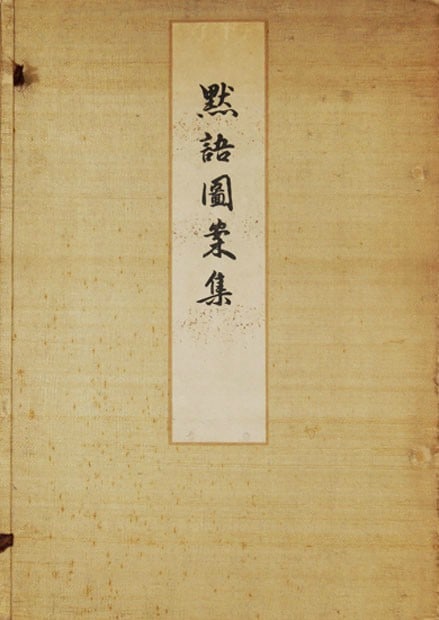 默語圖案集